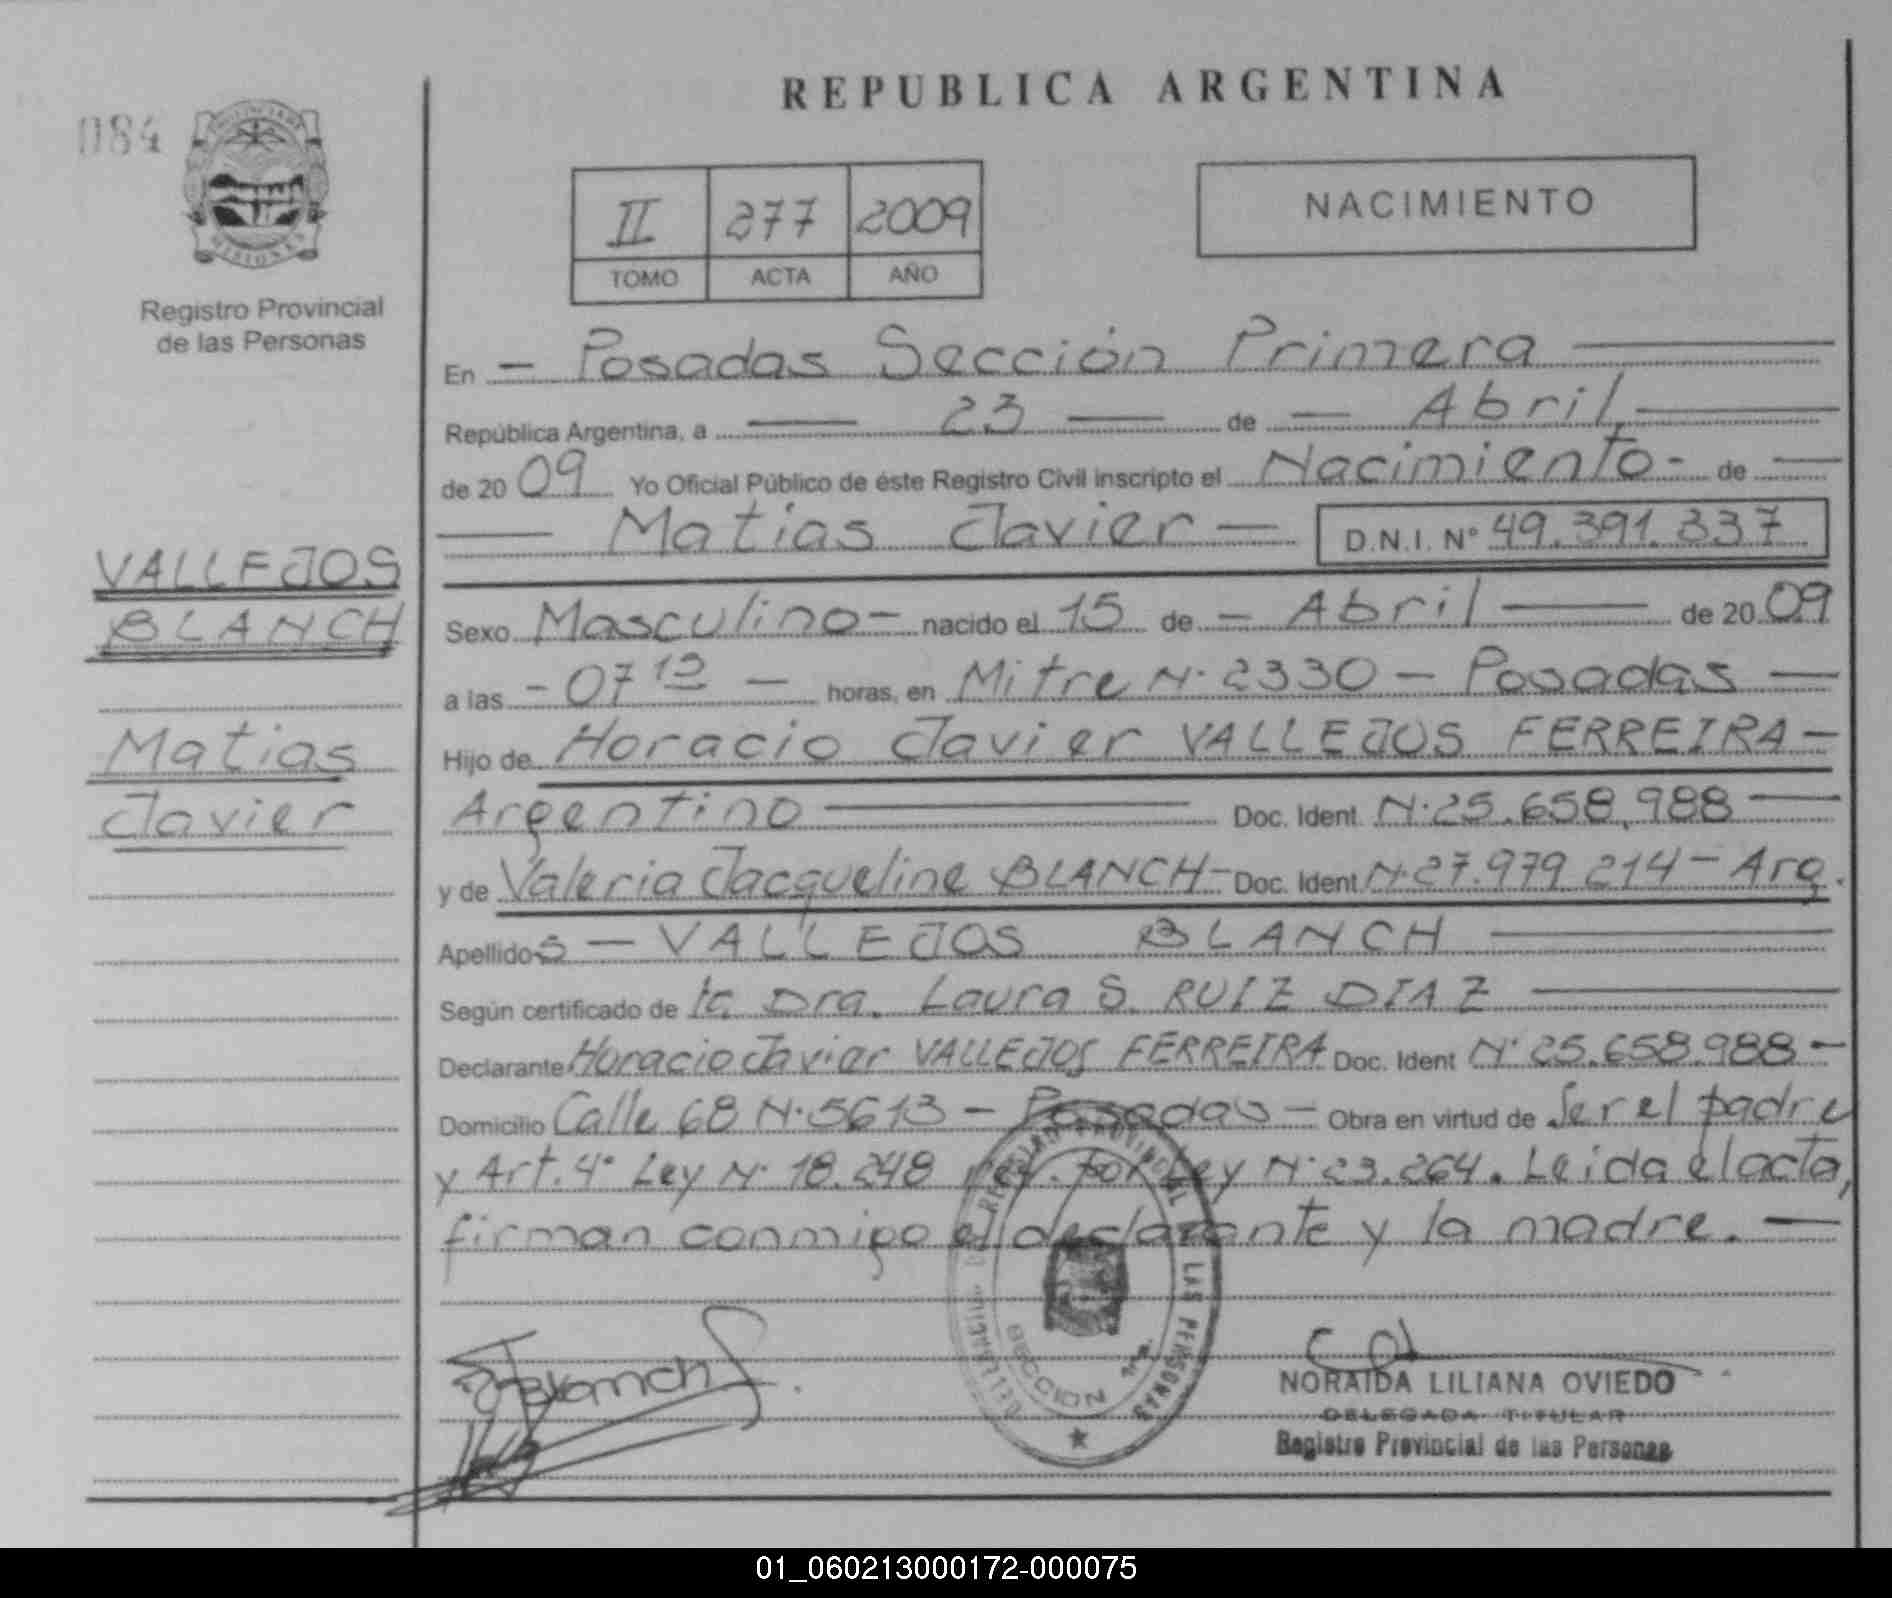 084
REPUBLICA ARGENTINA
II 277 2009
TOMO ACTA AÑO
NACIMIENTO
MISIONES
Registro Provincial
de las Personas
VALLEJOS
BLANCH
Matias
Javier
En - Posadas Sección Primera
República Argentina, a 23 de - Abril
de 2009 Yo Oficial Público de éste Registro Civil inscripto el Nacimiento - de
Matias Javier - D.N.I. N° 49.391.337
Sexo Masculino - nacido el 15 de - Abril de 2009
a las - 07 horas, en Mitre N° 2330 - Posadas
Hijo de Horacio Javier VALLEJOS FERREIRA -
Argentino Doc. Ident. N° 25.658.988
y de Valeria Jacqueline BLANCH - Doc. Ident N° 27.979.214 - Arg.
Apellidos - VALLEJOS BLANCH
Según certificado de la Dra. Laura S. RUIZ DIAZ
Declarante Horacio Javier VALLEJOS FERREIRA Doc. Ident N° 25.658.988 -
Domicilio Calle 68 N° 5613 - Posadas - Obra en virtud de Ser el padre
y Art. 4° Ley N° 18.248 por Ley N° 23.264. Leida el acta,
firman conmigo el declarante y la madre.
REGISTRO PROVINCIAL LAS PERSONAS
SECCION 1ra.
Blanch
NORAIDA LILIANA OVIEDO
DELEGADA TITULAR
Registro Provincial de las Personas
01_060213000172-000075